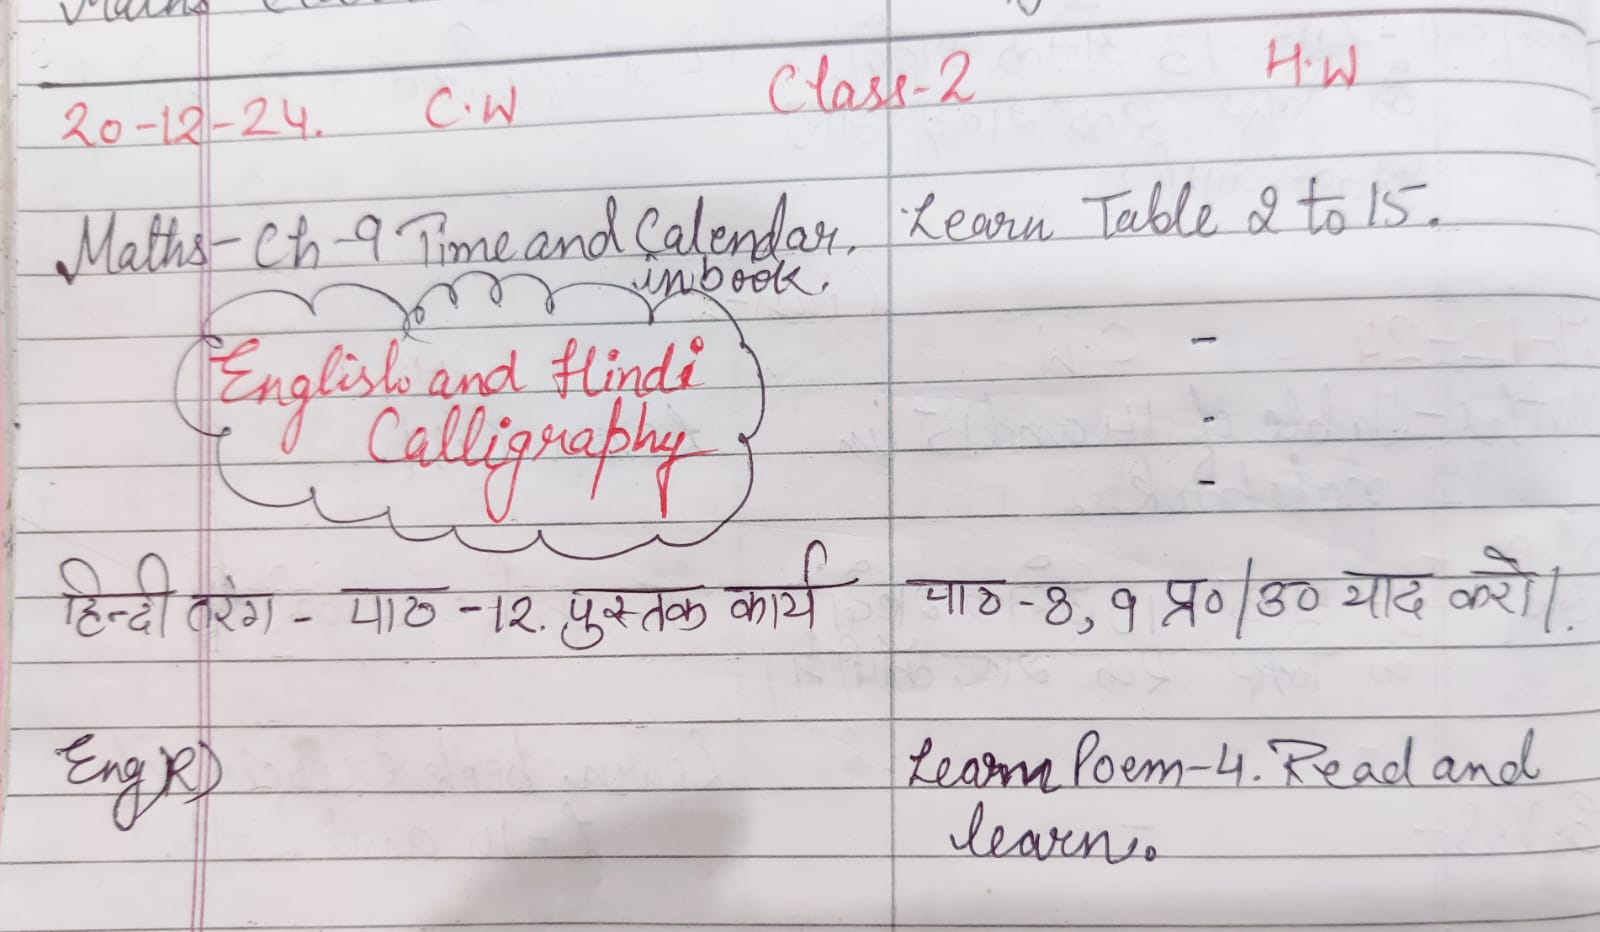 20-12-24. C.W Class-2 H.W
Maths- Ch-9 Time and Calendar. Learn Table 2 to 15.
in book.
-
English and Hindi
Calligraphy
-
-
हिन्दी तरंग - पाठ -12. पुस्तक कार्य पाठ-8, 9 प्र०/उ० याद करो।.
Eng(R) Learn Poem-4. Read and
learn.